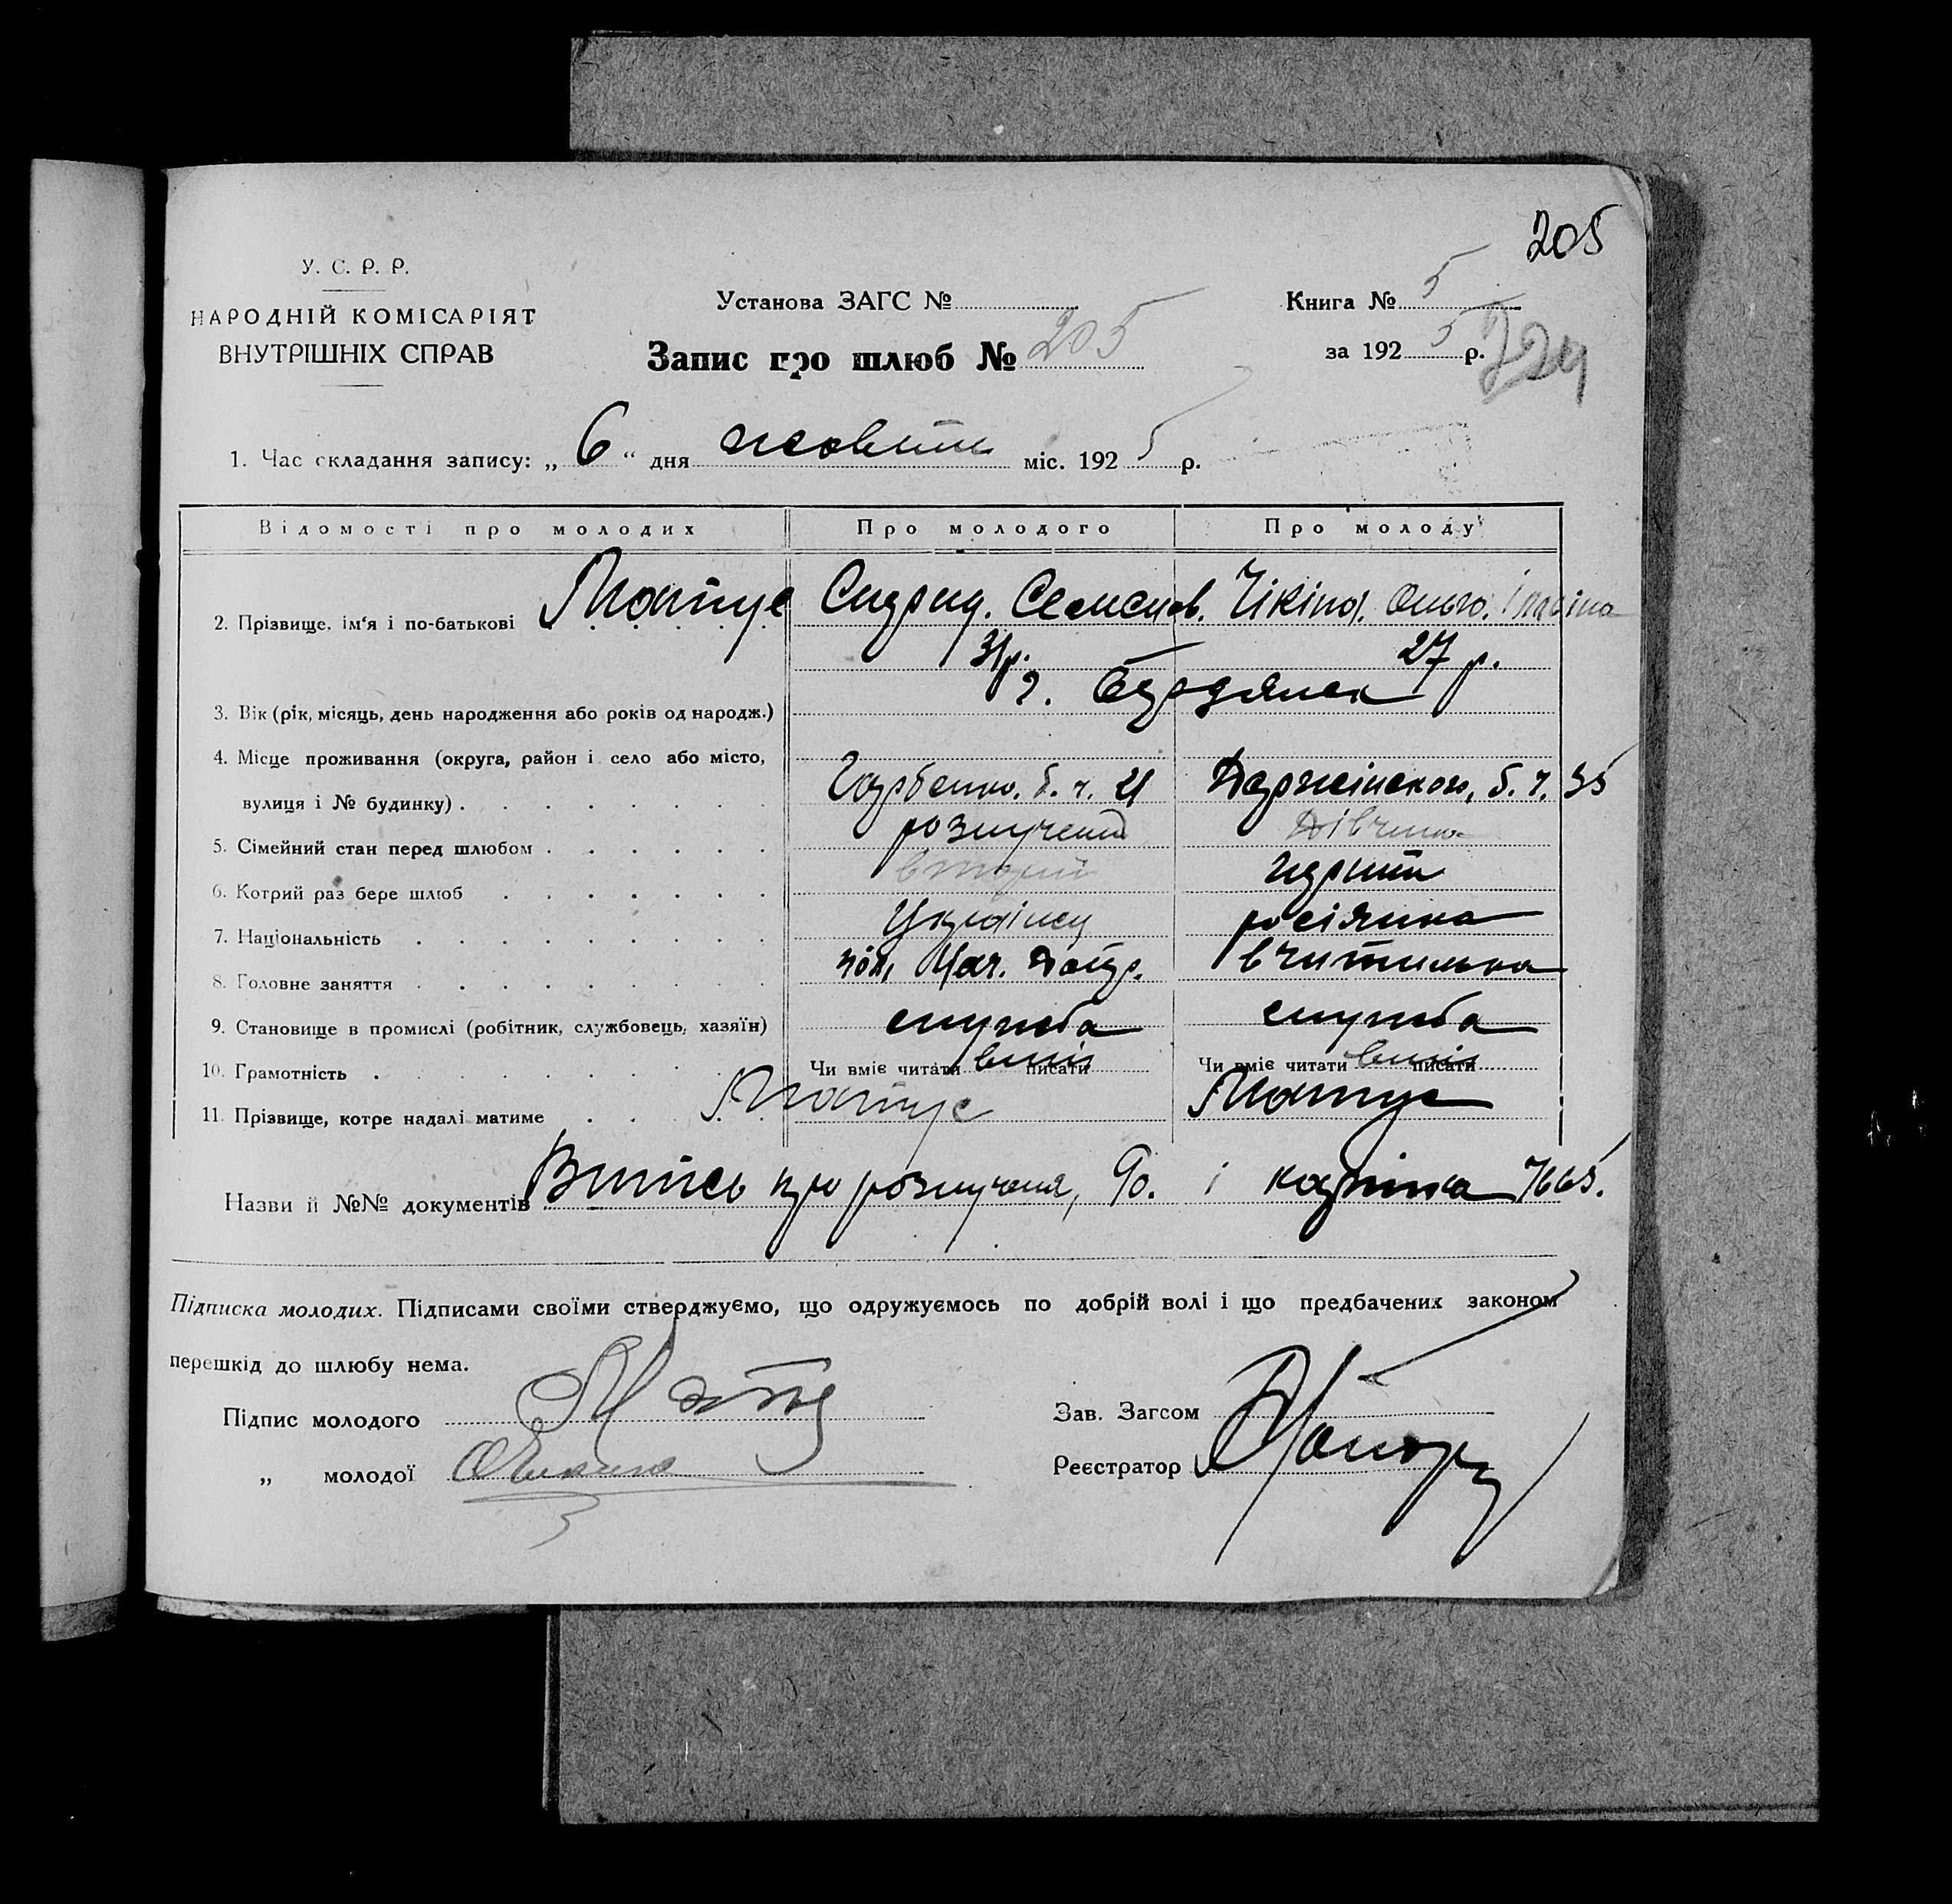 205
У. С. Р. Р.
НАРОДНІЙ КОМІСАРІЯТ
ВНУТРІШНІХ СПРАВ
Установа ЗАГС №
Книга № 5
Запис про шлюб № 205
за 1925 р.
724
1. Час складання запису: „ 6 “ дня жовтн міс. 1925 р.
Відомості про молодих Про молодого Про молоду
2. Прізвище, ім'я і по-батькові Матус Семенов.
31р. 27 р.
г. Бердянск
3. Вік (рік, місяць, день народження або років од народж.)
4. Місце проживання (округа, район і село або місто,
вулиця і № будинку) Горбенко. б. ч. 21 Держінского, б. ч. 35
5. Сімейний стан перед шлюбом розлучений дівчина
6. Котрий раз бере шлюб вторий перший
7. Національність Українец росіянка
8. Головне заняття вчителька
9. Становище в промислі (робітник, службовець, хазяїн) служба служба
10. Грамотність Чи вміє читати вміє писати Чи вміє читати вміє писати
11. Прізвище, котре надалі матиме Матус Матус
Назви й №№ документів Витяг про розлучення, 90. і картка 7665.
Підписка молодих. Підписами своїми стверджуємо, що одружуємось по добрій волі і що предбачених законом
перешкід до шлюбу нема.
Підпис молодого
Зав. Загсом
„ молодої
Реєстратор